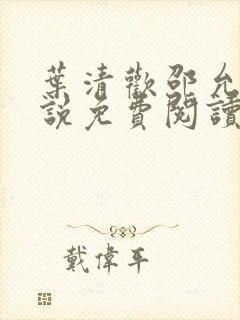 葉清歡邵允
說免費閱讀
戴偉平